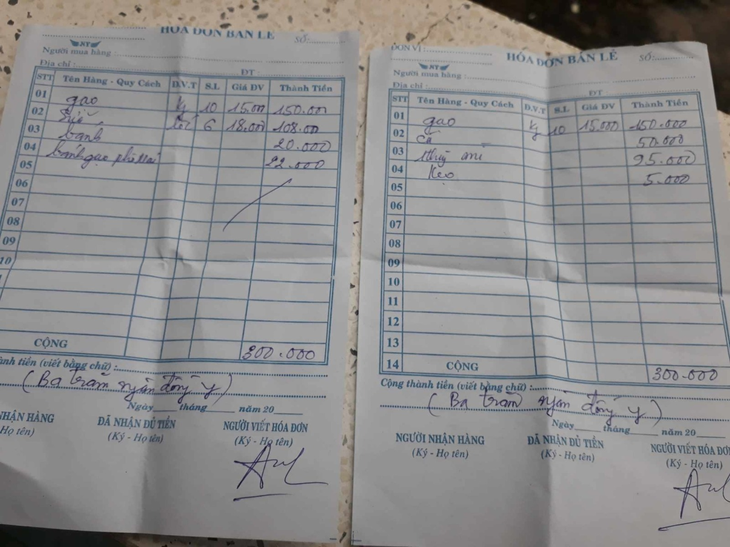 HÓA ĐƠN BÁN LẺ
Số:
XT
Người mua hàng :
Địa chỉ : ĐT
STT Tên Hàng - Quy Cách Đ.V.T S.L Giá ĐV Thành Tiền
01 gạo kg 10 15.000 150.000
02 6 18.000 108.000
03 bánh 20.000
04 bánh gạo phô mai 22.000
05
06
07
08
09
10
CỘNG 300.000
thành tiền (viết bằng chữ) :
( Ba trăm ngàn đồng y )
Ngày tháng năm 20
NHẬN HÀNG ĐÃ NHẬN ĐỦ TIỀN NGƯỜI VIẾT HÓA ĐƠN
- Họ tên) (Ký - Họ tên) (Ký - Họ tên)
ĐƠN VỊ : HÓA ĐƠN BÁN LẺ Số:
XT
Người mua hàng :
Địa chỉ : ĐT
STT Tên Hàng - Quy Cách Đ.V.T S.L Giá ĐV Thành Tiền
01 gạo kg 10 15.000 150.000
02 cá 50.000
03 mì 95.000
04 kẹo 5.000
05
06
07
08
09
10
11
12
13
14 CỘNG 300.000
Cộng thành tiền (viết bằng chữ) :
( Ba trăm ngàn đồng y )
Ngày tháng năm 20
NGƯỜI NHẬN HÀNG ĐÃ NHẬN ĐỦ TIỀN NGƯỜI VIẾT HÓA ĐƠN
(Ký - Họ tên) (Ký - Họ tên) (Ký - Họ tên)